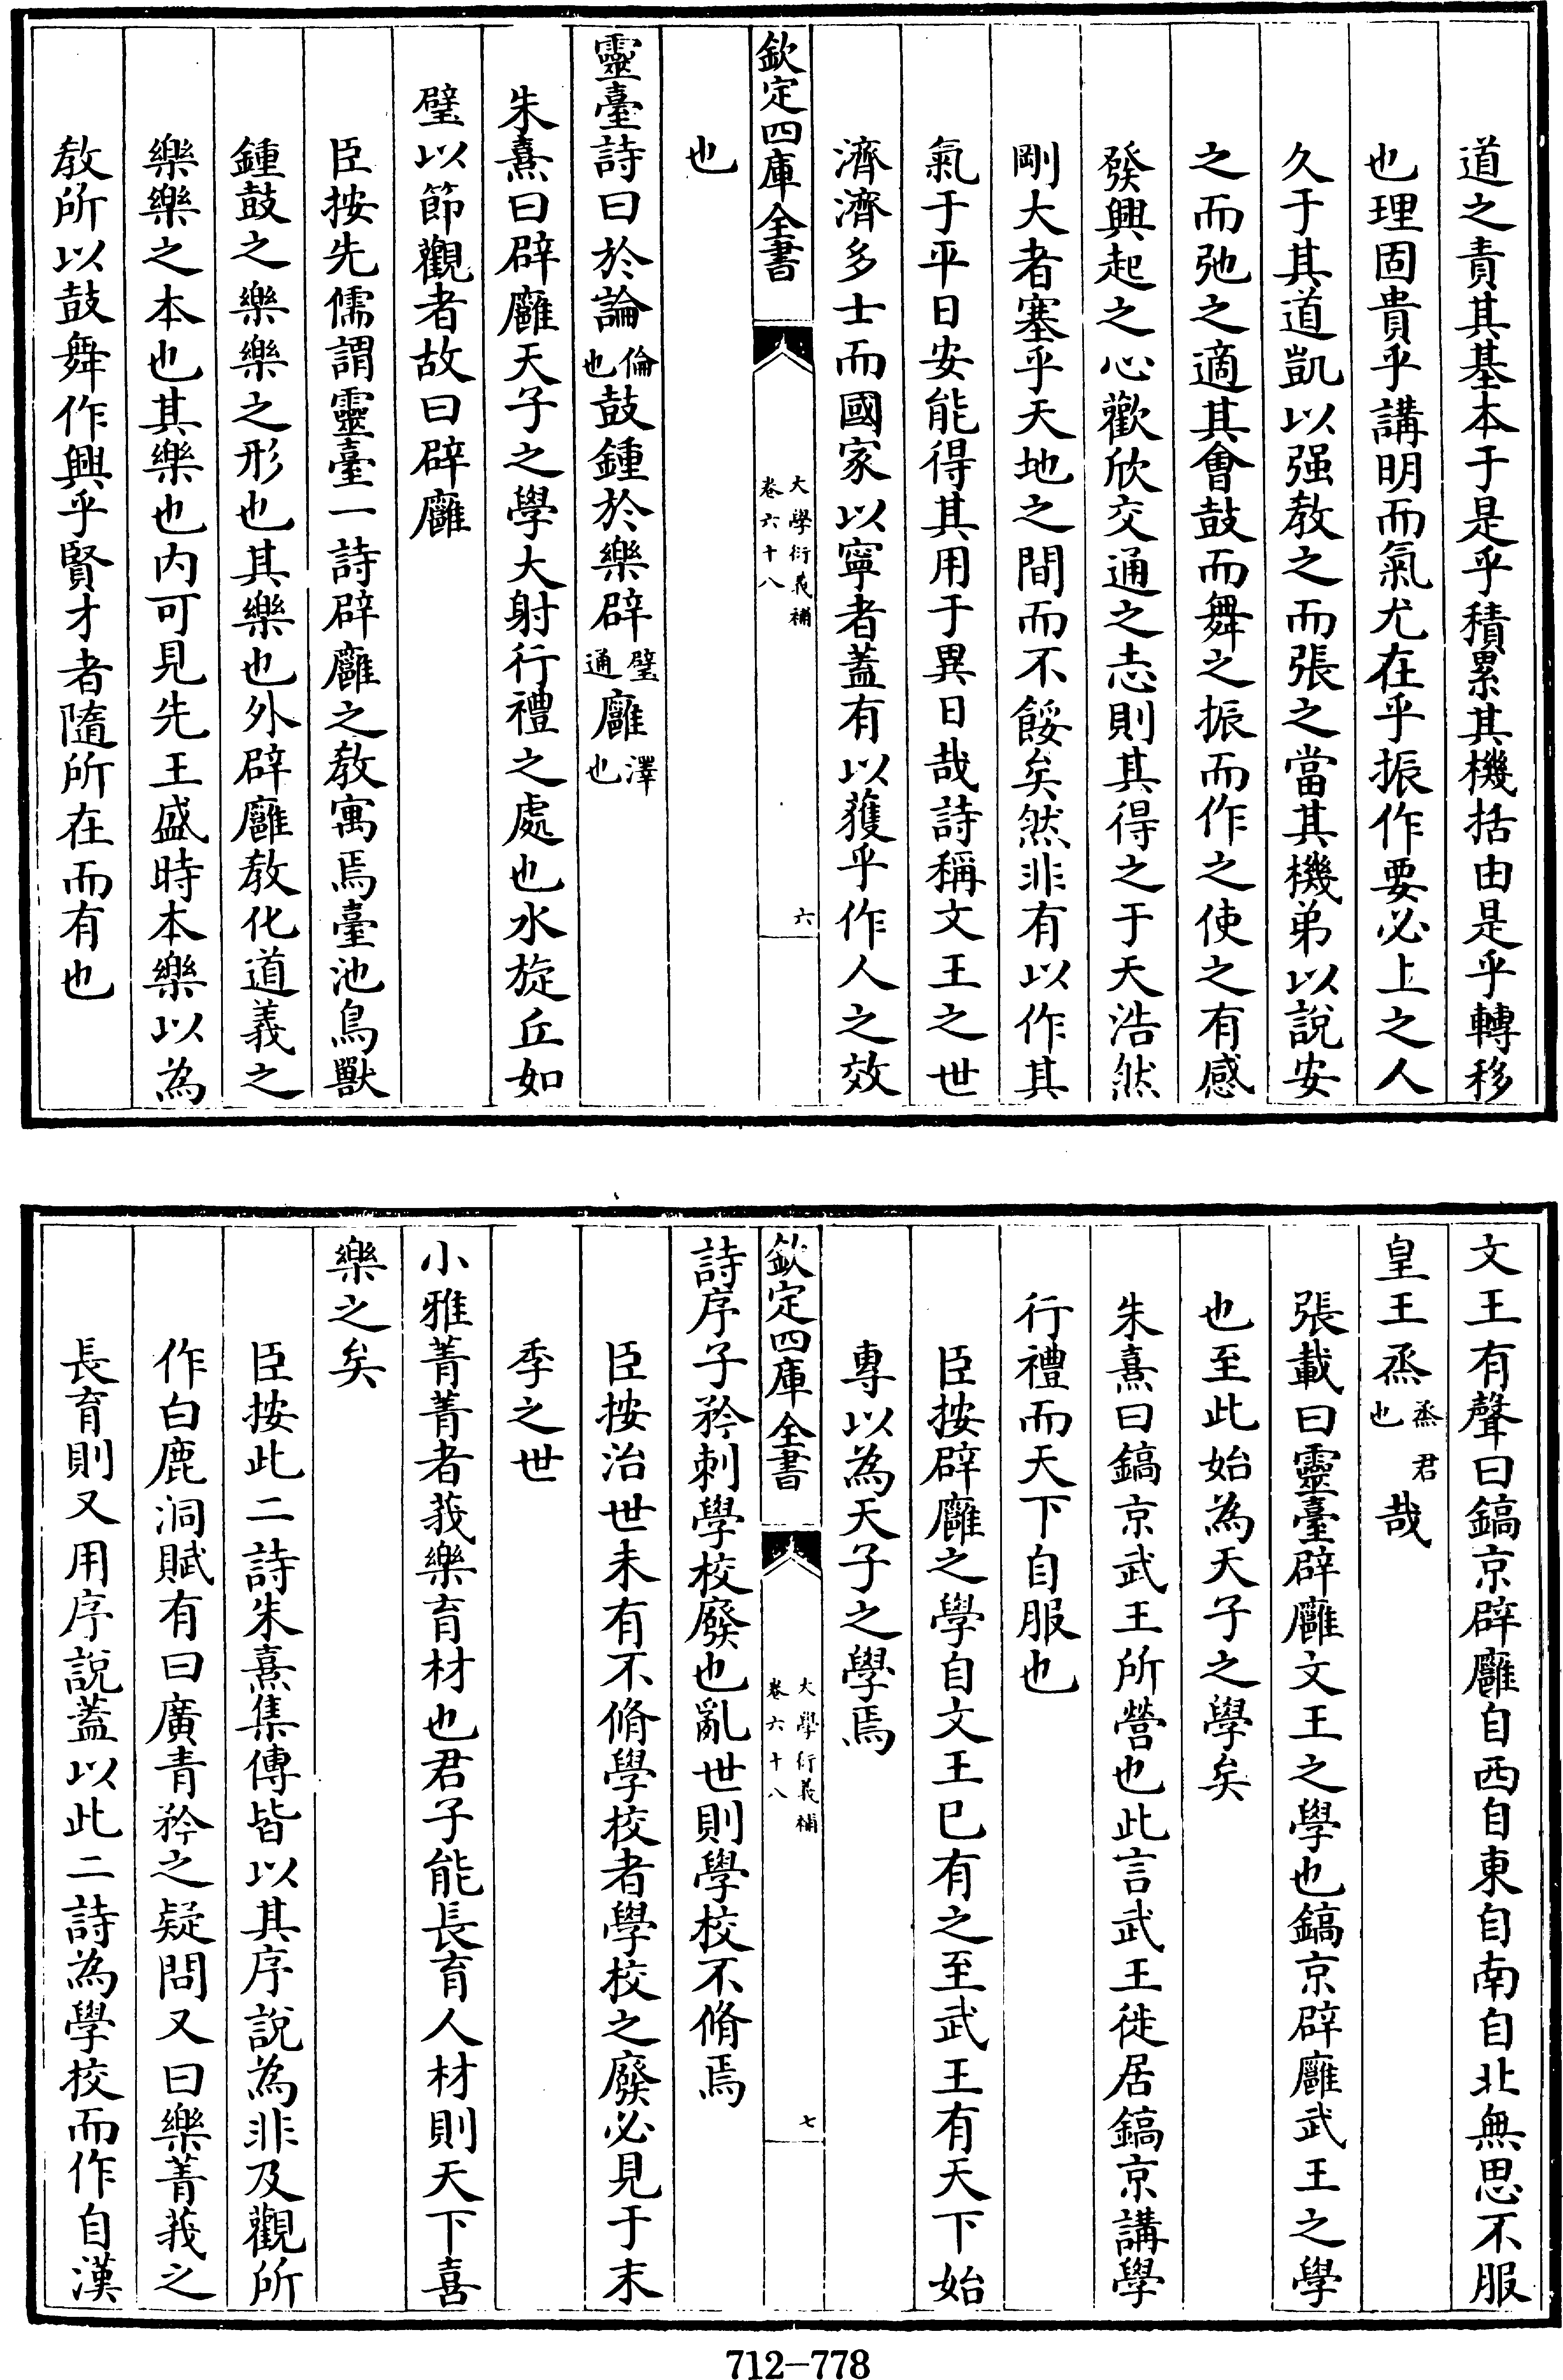 道之責其基本于是乎積累其機括由是乎轉移
也理固貴乎講明而氣尤在乎振作要必上之人
久于其道凱以强教之而張之當其機弟以說安
之而弛之適其會鼓而舞之振而作之使之有感
發興起之心歡欣交通之志則其得之于天浩然
剛大者塞乎天地之間而不餒矣然非有以作其
氣于平日安能得其用于異日哉詩稱文王之世
濟濟多士而國家以寧者蓋有以獲乎作人之效
欽定四庫全書 大學衍義補 卷六十八 六
也
靈臺詩曰於論倫也鼓鍾於樂辟璧通廱澤也
朱熹曰辟廱天子之學大射行禮之處也水旋丘如
璧以節觀者故曰辟廱
臣按先儒謂靈臺一詩辟廱之教寓焉臺池鳥獸
鍾鼓之樂樂之形也其樂也外辟廱教化道義之
樂樂之本也其樂也内可見先王盛時本樂以為
教所以鼓舞作興乎賢才者隨所在而有也
文王有聲曰鎬京辟廱自西自東自南自北無思不服
皇王烝烝君也哉
張載曰靈臺辟廱文王之學也鎬京辟廱武王之學
也至此始為天子之學矣
朱熹曰鎬京武王所營也此言武王徙居鎬京講學
行禮而天下自服也
臣按辟廱之學自文王已有之至武王有天下始
專以為天子之學焉
欽定四庫全書 大學衍義補 卷六十八 七
詩序子矜刺學校廢也亂世則學校不脩焉
臣按治世未有不脩學校者學校之廢必見于末
季之世
小雅菁菁者莪樂育材也君子能長育人材則天下喜
樂之矣
臣按此二詩朱熹集傳皆以其序說為非及觀所
作白鹿洞賦有曰廣青矜之疑問又曰樂菁莪之
長育則又用序說蓋以此二詩為學校而作自漢
712-778